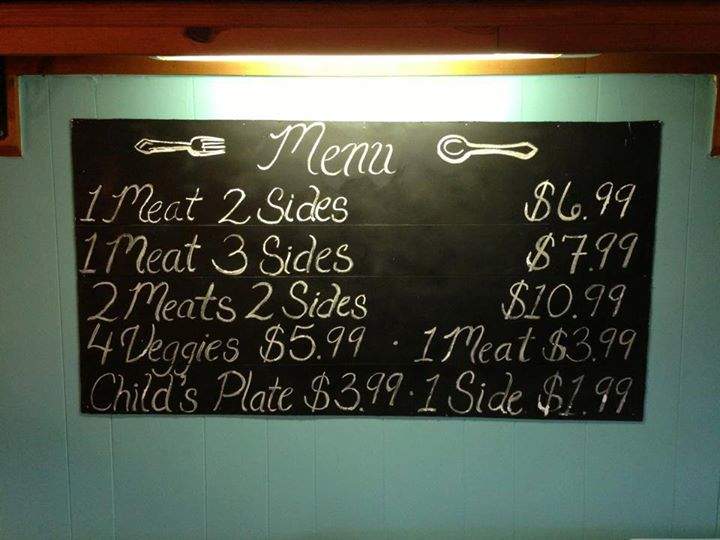 Menu
1 Meat 2 Sides $6.99
1 Meat 3 Sides $7.99
2 Meats 2 Sides $10.99
4 Veggies $5.99 · 1 Meat $3.99
Child's Plate $3.99 · 1 Side $1.99